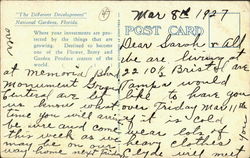 "The Different Development"
National Gardens, Florida.
Where your investments are protected by the things that are growing. Destined to become one of the Flower, Berry and Garden Produce centers of the world.
Mar 8th 1927
POST CARD
Dear Sarah & all
we are living at
2210 E Bristol ave
Tampa would
like to have you
over Friday Mar 11th
if it is cold
wear lots of
heavy clothes
Clyde will meet
at memorial
Monument
us know what
time you will arrive
be sure and come
this week as we
may be on our
way home next Friday